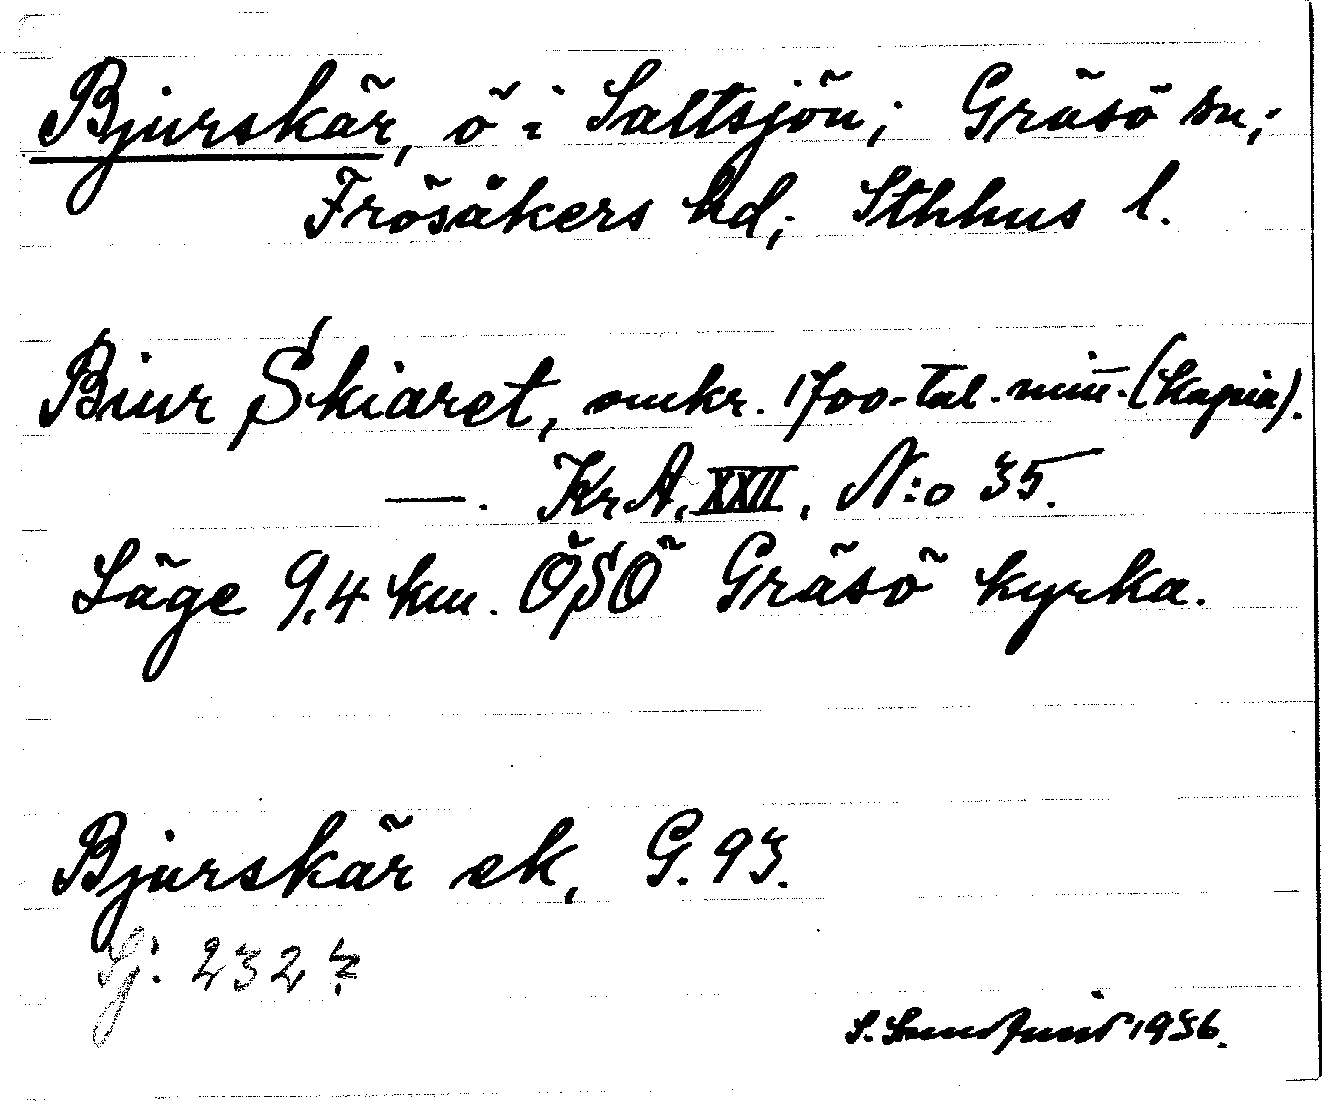 Bjurskär, ö i Saltsjön; Gräsö sn;
Frösåkers hd; Sthlms l.
Biur Skiäret, omkr. 1700-tal. mitt. (kopia).
—. Kr.A. XXII, N:o 35.
Läge 9,4 km. ÖSÖ Gräsö kyrka.
Bjurskär ek, G.93.
Sj. 232
S. 1936.